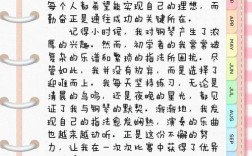 每个人都希望能实现自己的理想，而
勤奋正是通往成功的关键所在。
记得小时候，我对钢琴产生了浓
厚的兴趣。然而，初学者的我常常被
复杂的乐谱和繁琐的指法所困扰。尽
管如此，我并没有放弃，而是选择了
迎难而上。我每天坚持练习，无论是
清晨的鸟鸣，还是夜晚的星辰，都见
证了我与钢琴的默契。渐渐地，我发
现自己的指法愈发娴熟，演奏的乐曲
也越来越动听。正是这份不懈的努
力，让我在一次次比赛中获得了优异
APR
MAY
JUN
JUL
AUG
SEP